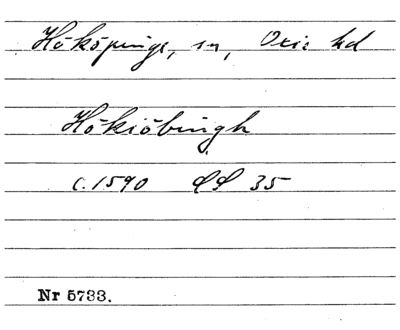 Hököpinge, sn, Oxie hd
Hökiöbingh
c. 1590 LL 35
Nr 5733.